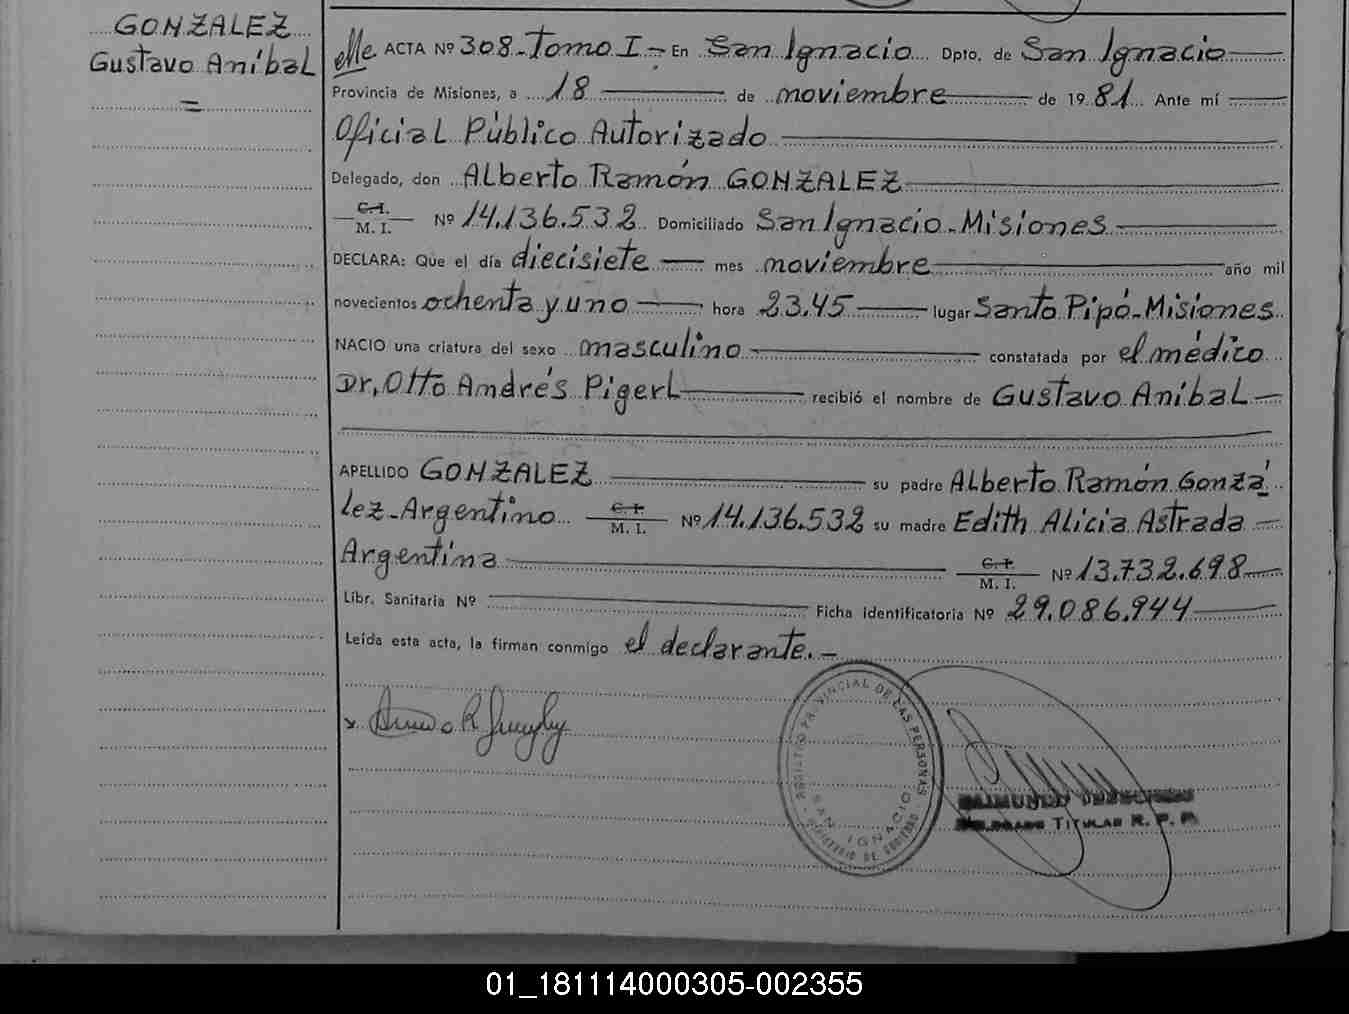 GONZALEZ
Gustavo Aníbal
=
ACTA Nº 308-Tomo I.- En San Ignacio Dpto. de San Ignacio
Provincia de Misiones, a 18 de noviembre de 1981 Ante mí
Oficial Público Autorizado
Delegado, don Alberto Ramón GONZALEZ
C.I.
M. I. Nº 14.136.532 Domiciliado San Ignacio-Misiones
DECLARA: Que el día diecisiete mes noviembre año mil
novecientos ochenta y uno hora 23.45 lugar Santo Pipó-Misiones
NACIO una criatura del sexo masculino constatada por el médico
Dr. Otto Andrés Pigerl recibió el nombre de Gustavo Aníbal
APELLIDO GONZALEZ su padre Alberto Ramón Gonzá
lez-Argentino C.I.
M. I. Nº 14.136.532 su madre Edith Alicia Astrada
Argentina C.I.
M. I. Nº 13.732.698
Libr. Sanitaria Nº Ficha identificatoria Nº 29.086.944
Leída esta acta, la firman conmigo el declarante.-
REGISTRO PROVINCIAL DE LAS PERSONAS
SAN IGNACIO
MINISTERIO DE GOBIERNO
RAIMUNDO
DELEGADO TITULAR R. P. P.
01_181114000305-002355